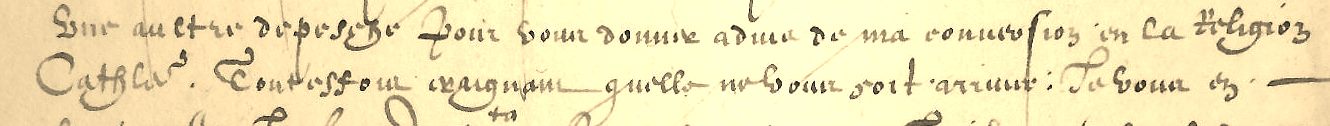 Vne aultre depesche pour vous donner aduis de ma conuersion en la Religion
Cath.le. Toutesfois craignant quelle ne vous soit arriuee: Je vous en